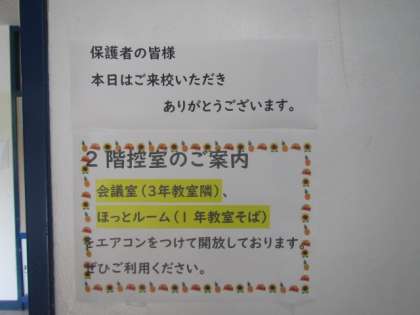 保護者の皆様
本日はご来校いただき
ありがとうございます。
２階控室のご案内
会議室（３年教室隣）、
ほっとルーム（１年教室そば）
をエアコンをつけて開放しております。
ぜひご利用ください。